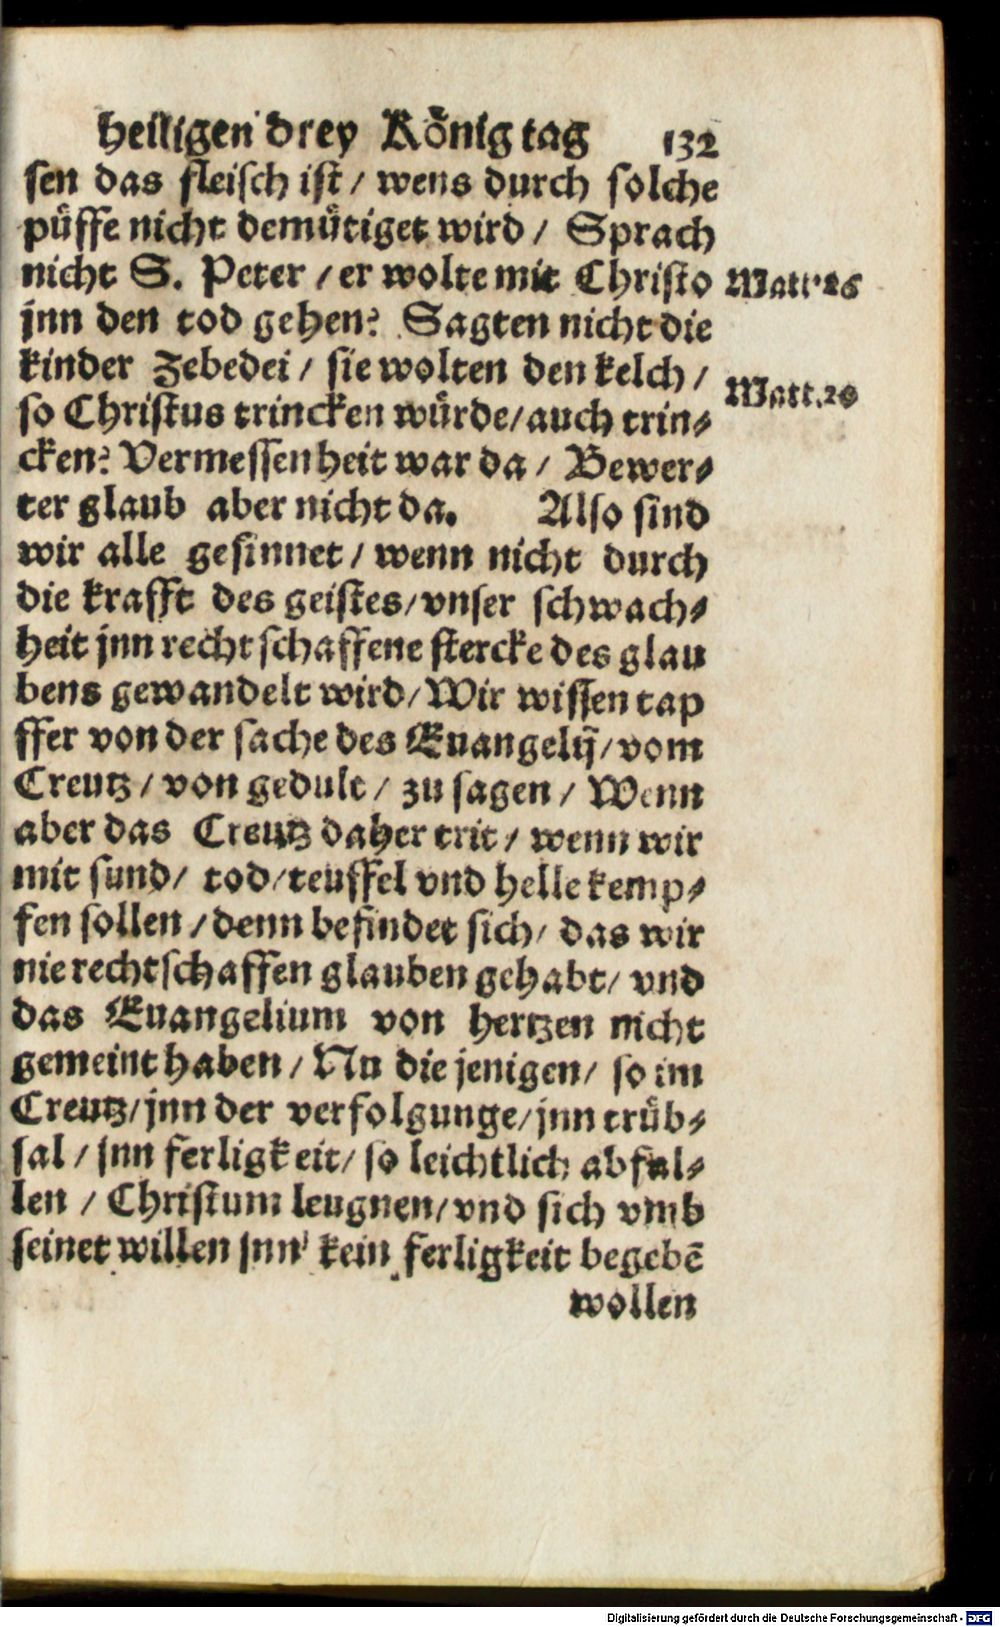 heiligen drey Koͤnig tag 132
sen das fleisch ist / wens durch solche
puͤffe nicht demuͤtiget wird / Sprach
nicht S. Peter / er wolte mit Christo
Matt. 26
jnn den tod gehen? Sagten nicht die
kinder Zebedei / sie wolten den kelch /
Matt. 20
so Christus trincken wuͤrde / auch trin⸗
cken? Vermessenheit war da / Bewer⸗
ter glaub aber nicht da. Also sind
wir alle gesinnet / wenn nicht durch
die krafft des geistes / vnser schwach⸗
heit jnn rechtschaffene stercke des glau
bens gewandelt wird / Wir wissen tap
ffer von der sache des Euangelij / vom
Creutz / von gedult / zu sagen / Wenn
aber das Creutz daher trit / wenn wir
mit sund / tod / teuffel vnd helle kemp⸗
fen sollen / denn befindet sich / das wir
nie rechtschaffen glauben gehabt / vnd
das Euangelium von hertzen nicht
gemeint haben / Nu die jenigen / so im
Creutz / jnn der verfolgunge / jnn truͤb⸗
sal / jnn ferligkeit / so leichtlich abfal⸗
len / Christum leugnen / vnd sich vmb
seinet willen jnn kein ferligkeit begebē
wollen
Digitalisierung gefördert durch die Deutsche Forschungsgemeinschaft - DFG